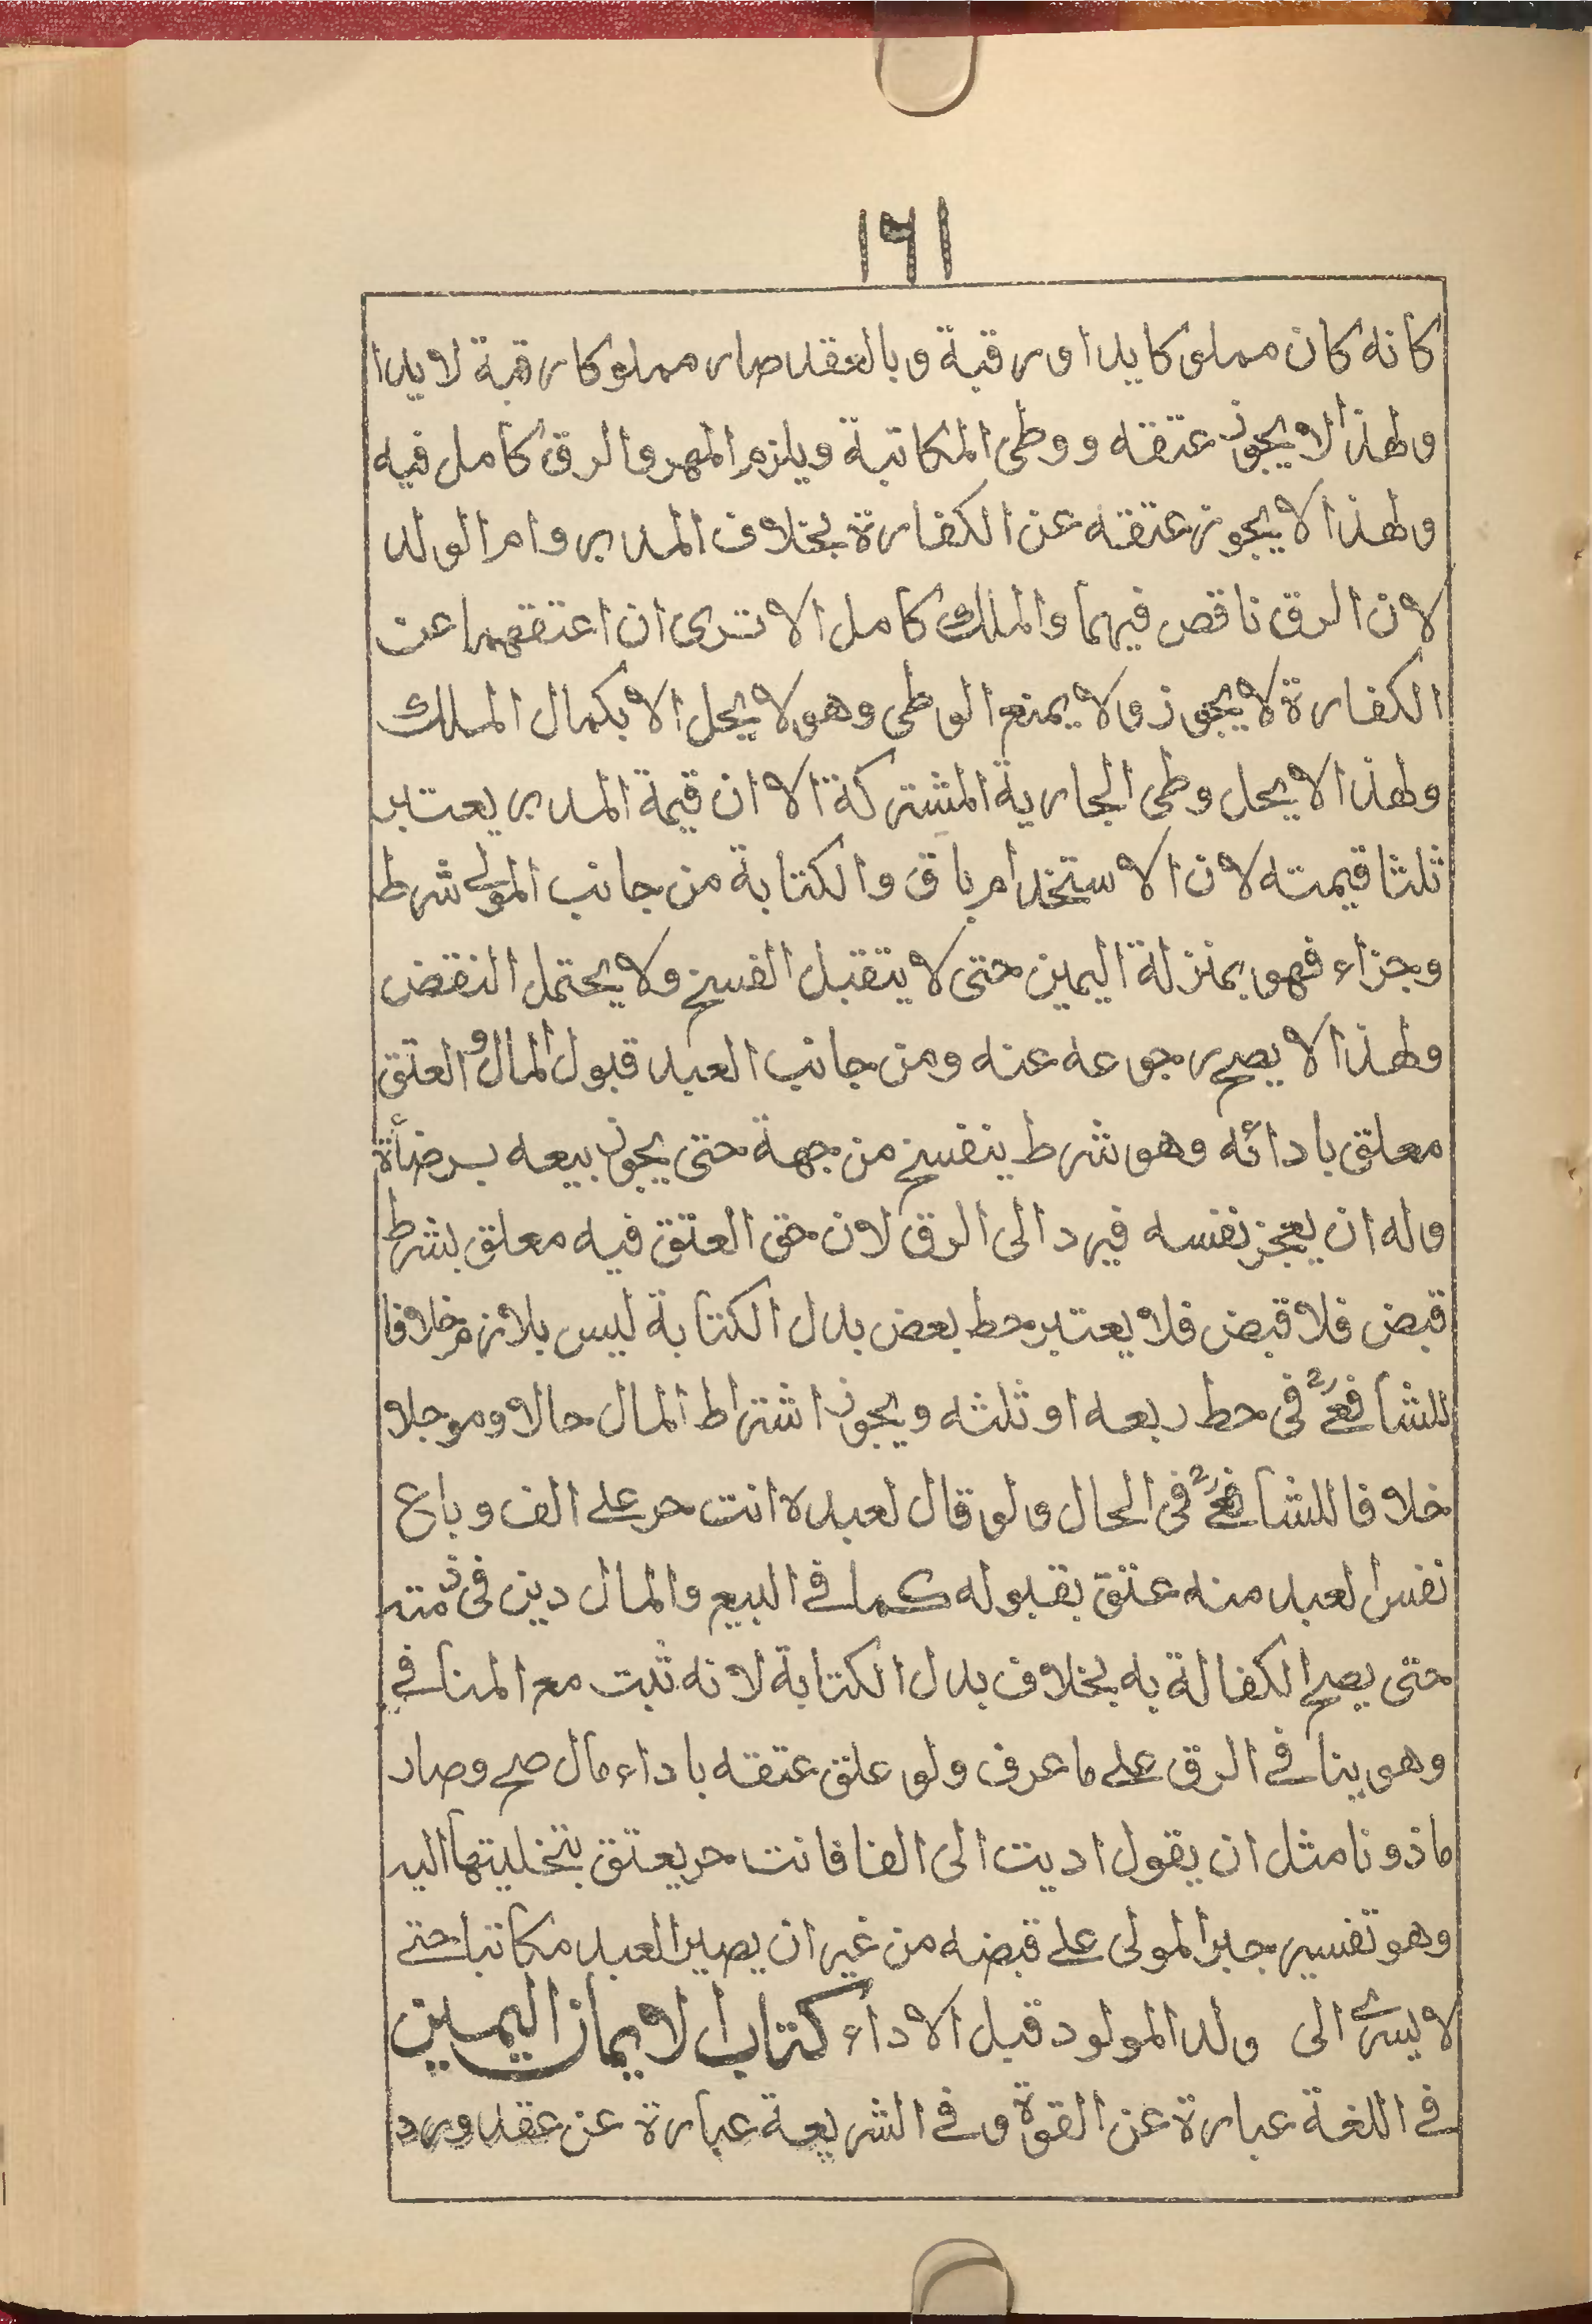 ١٦١
كانه كان مملوكا يدا ورقبة وبالعقد صار مملوكا رقبة لا يدا
ولهذا لا يجوز عتقه ووطى المكاتبة ويلزم المهر والرق كامل فيه
ولهذا لا يجوز عتقه عن الكفارة بخلاف المدبر وام الولد
لان الرق ناقص فيهما والملك كامل الا ترى ان اعتقهما عن
الكفارة لا يجوز ولا يمنع الوطى وهو لا يحل الا بكمال الملك
ولهذا لا يحل وطى الجارية المشتركة الا ان قيمة المدبر يعتبر
ثلثا قيمته لان الاستخدام باق والكتابة من جانب المولى شرط
وجزاء فهو بمنزلة اليمين حتى لا يتقبل الفسخ ولا يحتمل النقض
ولهذا لا يصح رجوعه عنه ومن جانب العبد قبول المال والعتق
معلق بادائه وهو شرط ينفسخ من جهة حتى يجوز بيعه برضأة
وله ان يعجز نفسه فيرد الى الرق لان حق العتق فيه معلق بشرط
قبض فلا قبض فلا يعتبر حط بعض بدل الكتابة ليس بلازم خلافا
للشافعي في حط ربعه او ثلثه ويجوز اشتراط المال حالا وموجلا
خلافا للشافعي في الحال ولو قال لعبده انت حر على الف وباع
نفس العبد منه عتق بقبوله كما في البيع والمال دين في ذمته
حتى يصح الكفالة به بخلاف بدل الكتابة لانه ثبت مع المنافي
وهو ينافي الرق على ما عرف ولو علق عتقه باداء مال صح وصار
ماذونا مثل ان يقول اديت الى الفا فانت حر يعتق بتخليتها اليه
وهو تفسير جبر المولى على قبضه من غير ان يصير العبد مكاتبا حتى
لا يسرى الى ولد المولود قبل الاداء كتاب الايمان اليمين
في اللغة عبارة عن القوة وفي الشريعة عبارة عن عقد ورد